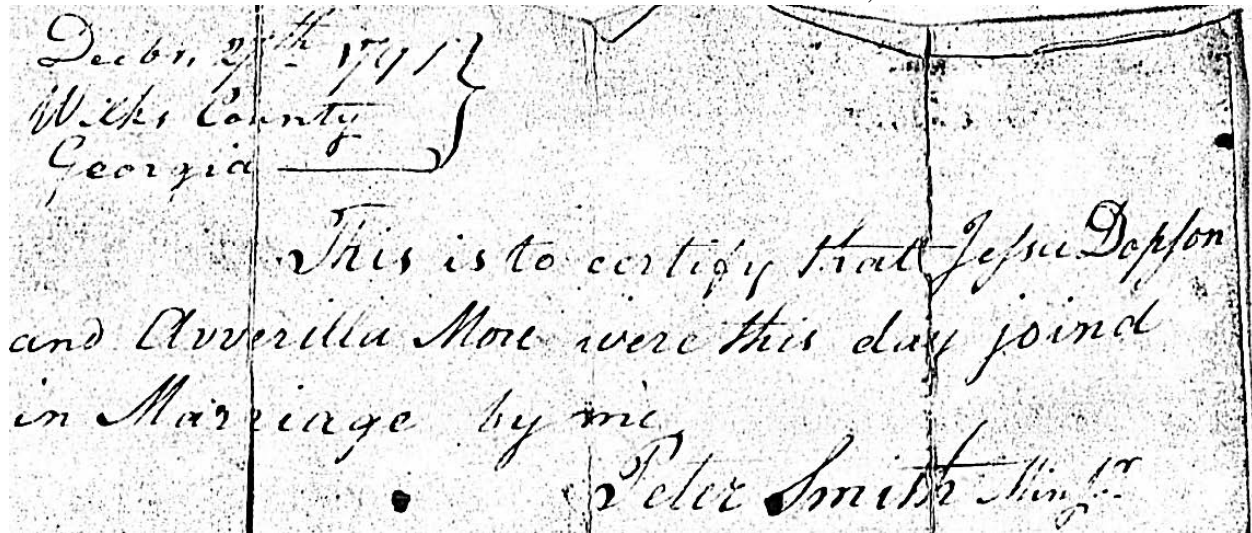 Decbr. 27th 1791
Wilks County
Georgia
This is to certify that Jessee Dopson
and Avverilla More were this day joind
in Marriage by me
Peter Smith Minstr